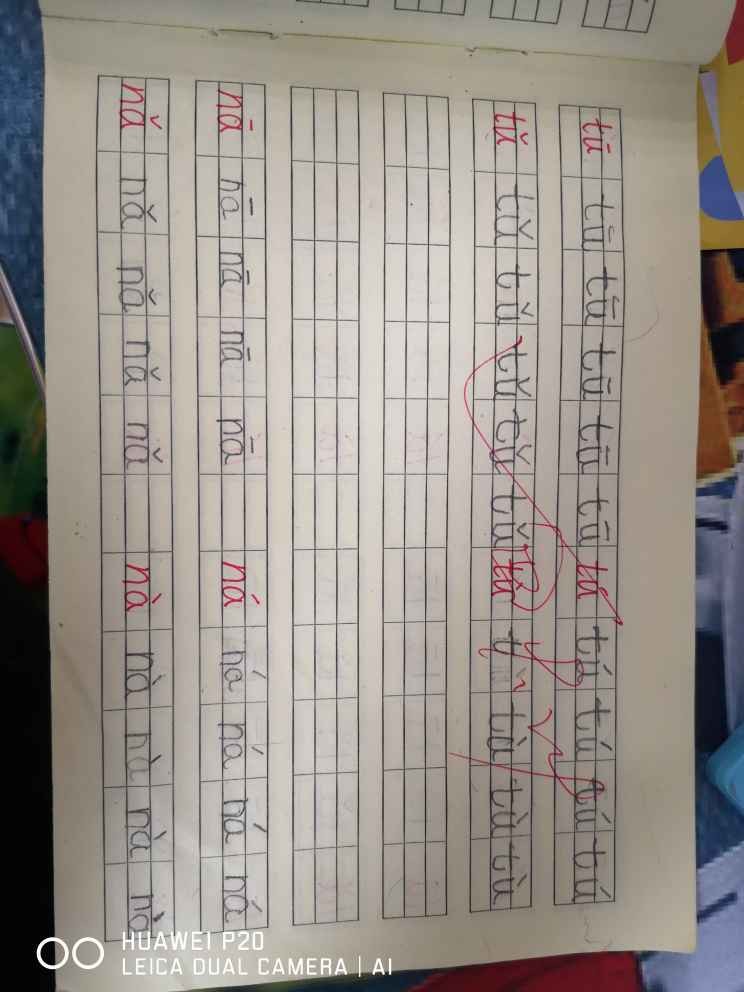 tū tū tū tū tū tū tú tú tú tú tú
tǔ tǔ tǔ tǔ tǔ tǔ tù tù tù tù
nā nā nā nā nā ná ná ná ná ná
nǎ nǎ nǎ nǎ nǎ nà nà nà nà nà
HUAWEI P20
LEICA DUAL CAMERA | AI